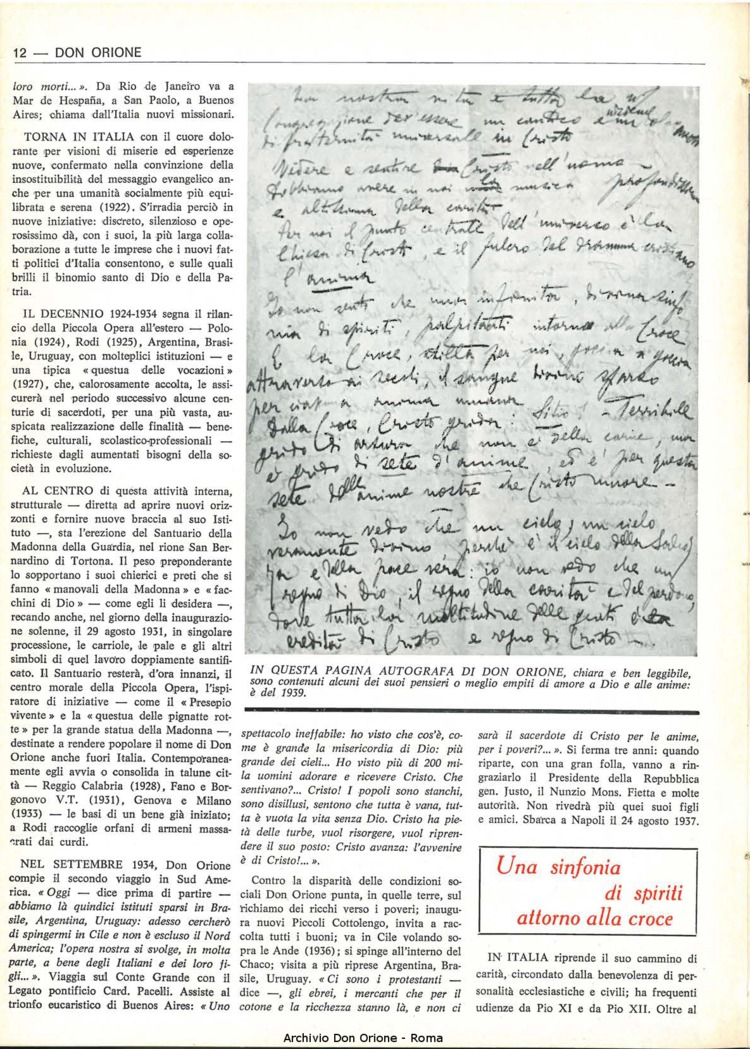 12 — DON ORIONE
loro morti... ». Da Rio de Janeiro va a
Mar de Hespaña, a San Paolo, a Buenos
Aires; chiama dall'Italia nuovi missionari.
TORNA IN ITALIA con il cuore dolo-
rante per visioni di miserie ed esperienze
nuove, confermato nella convinzione della
insostituibilità del messaggio evangelico an-
che per una umanità socialmente più equi-
librata e serena (1922). S'irradia perciò in
nuove iniziative: discreto, silenzioso e ope-
rosissimo dà, con i suoi, la più larga colla-
borazione a tutte le imprese che i nuovi fat-
ti politici d'Italia consentono, e sulle quali
brilli il binomio santo di Dio e della Pa-
tria.
IL DECENNIO 1924-1934 segna il rilan-
cio della Piccola Opera all'estero — Polo-
nia (1924), Rodi (1925), Argentina, Brasi-
le, Uruguay, con molteplici istituzioni — e
una tipica « questua delle vocazioni »
(1927), che, calorosamente accolta, le assi-
curerà nel periodo successivo alcune cen-
turie di sacerdoti, per una più vasta, au-
spicata realizzazione delle finalità — bene-
fiche, culturali, scolastico-professionali —
richieste dagli aumentati bisogni della so-
cietà in evoluzione.
AL CENTRO di questa attività interna,
strutturale — diretta ad aprire nuovi oriz-
zonti e fornire nuove braccia al suo Isti-
tuto —, sta l'erezione del Santuario della
Madonna della Guardia, nel rione San Ber-
nardino di Tortona. Il peso preponderante
lo sopportano i suoi chierici e preti che si
fanno « manovali della Madonna » e « fac-
chini di Dio » — come egli li desidera —,
recando anche, nel giorno della inaugurazio-
ne solenne, il 29 agosto 1931, in singolare
processione, le carriole, le pale e gli altri
simboli di quel lavoro doppiamente santifi-
cato. Il Santuario resterà, d'ora innanzi, il
centro morale della Piccola Opera, l'ispi-
ratore di iniziative — come il « Presepio
vivente » e la « questua delle pignatte rot-
te » per la grande statua della Madonna —,
destinate a rendere popolare il nome di Don
Orione anche fuori Italia. Contemporanea-
mente egli avvia o consolida in talune cit-
tà — Reggio Calabria (1928), Fano e Bor-
gonovo V.T. (1931), Genova e Milano
(1933) — le basi di un bene già iniziato;
a Rodi raccoglie orfani di armeni massa-
crati dai curdi.
NEL SETTEMBRE 1934, Don Orione
compie il secondo viaggio in Sud Ame-
rica. « Oggi — dice prima di partire —
abbiamo là quindici istituti sparsi in Bra-
sile, Argentina, Uruguay: adesso cercherò
di spingermi in Cile e non è escluso il Nord
America; l'opera nostra si svolge, in molta
parte, a bene degli Italiani e dei loro fi-
gli... ». Viaggia sul Conte Grande con il
Legato pontificio Card. Pacelli. Assiste al
trionfo eucaristico di Buenos Aires: « Uno
La nostra vita e tutta la
Congregazione dev'essere un cantico e insieme un
di fraternità universale in Cristo
Vedere e sentire Cristo nell'uomo —
Dobbiamo avere in noi la musica profondissima
e altissima della carità
Per noi il punto centrale dell'universo è la
Chiesa di Cristo, e il fulcro del dramma cristiano
l'anima
Io non sento che una infinita, divina sinfo
nia di spiriti, palpitanti intorno alla Croce
E la Croce, stilla per noi, goccia a goccia
attraverso ai secoli, il sangue divino sparso
per ciascuna anima umana
Dalla Croce, Cristo grida: Sitio! — Terribile
grido di arsura che non è della carne, ma
è grido di sete d'anime, ed è per questa
sete delle anime nostre che Cristo muore —
Io non vedo che un cielo, un cielo
veramente divino, perchè è il cielo della Salvez
za e della pace vera: io non vedo che un
regno di Dio, il regno della carità e del perdono,
dove tutta la moltitudine delle genti è
eredità di Cristo e regno di Cristo —
IN QUESTA PAGINA AUTOGRAFA DI DON ORIONE, chiara e ben leggibile,
sono contenuti alcuni dei suoi pensieri o meglio empiti di amore a Dio e alle anime:
è del 1939.
spettacolo ineffabile: ho visto che cos'è, co-
me è grande la misericordia di Dio: più
grande dei cieli... Ho visto più di 200 mi-
la uomini adorare e ricevere Cristo. Che
sentivano?... Cristo! I popoli sono stanchi,
sono disillusi, sentono che tutta è vana, tut-
ta è vuota la vita senza Dio. Cristo ha pie-
tà delle turbe, vuol risorgere, vuol ripren-
dere il suo posto: Cristo avanza: l'avvenire
è di Cristo!... ».
Contro la disparità delle condizioni so-
ciali Don Orione punta, in quelle terre, sul
richiamo dei ricchi verso i poveri; inaugu-
ra nuovi Piccoli Cottolengo, invita a rac-
colta tutti i buoni; va in Cile volando so-
pra le Ande (1936); si spinge all'interno del
Chaco; visita a più riprese Argentina, Bra-
sile, Uruguay. « Ci sono i protestanti —
dice —, gli ebrei, i mercanti che per il
cotone e la ricchezza stanno là, e non ci
sarà il sacerdote di Cristo per le anime,
per i poveri?... ». Si ferma tre anni: quando
riparte, con una gran folla, vanno a rin-
graziarlo il Presidente della Repubblica
gen. Justo, il Nunzio Mons. Fietta e molte
autorità. Non rivedrà più quei suoi figli
e amici. Sbarca a Napoli il 24 agosto 1937.
Una sinfonia
di spiriti
attorno alla croce
IN ITALIA riprende il suo cammino di
carità, circondato dalla benevolenza di per-
sonalità ecclesiastiche e civili; ha frequenti
udienze da Pio XI e da Pio XII. Oltre al
Archivio Don Orione - Roma